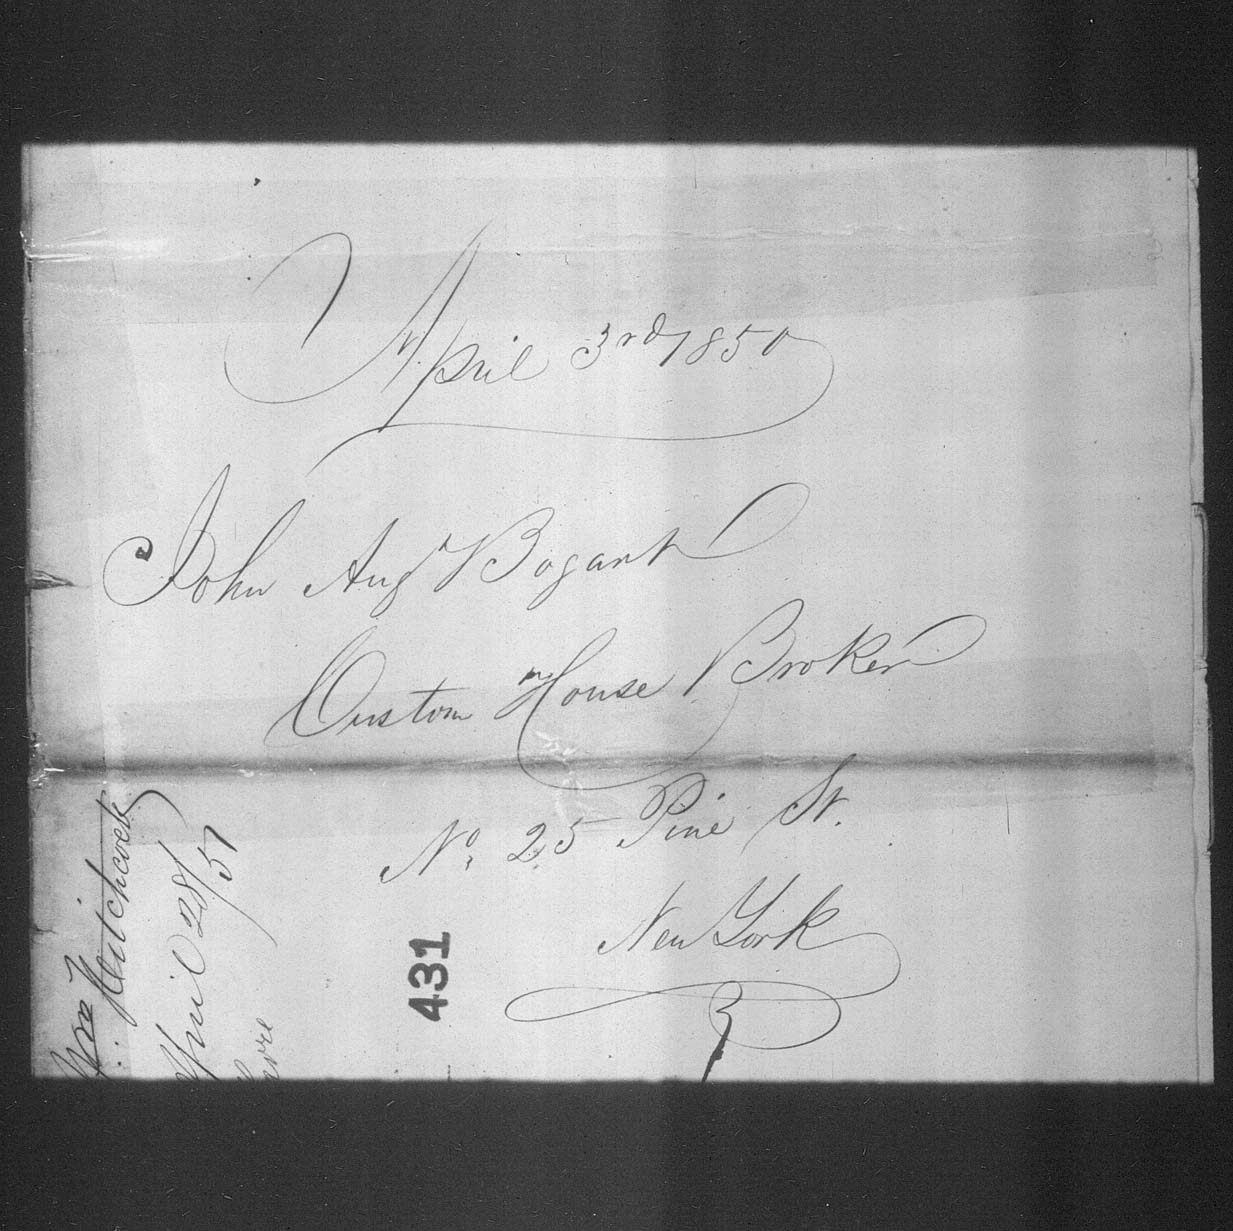 April 3rd 1850
John Augs Bogart
Custom House Broker
No. 25 Pine St.
New York
431
Wm Hutchcock
April 28/51